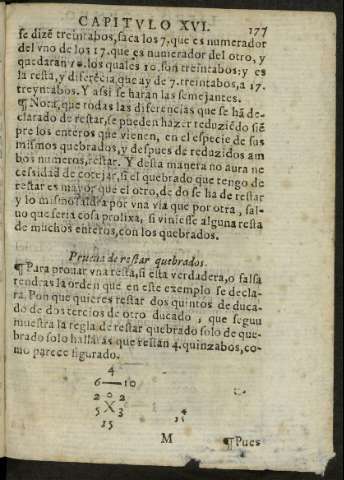 CAPITVLO XVI. 177
se dizẽ treintabos, saca los 7. que es numerador
del vno de los 17. que es numerador del otro, y
quedaràn 10. los quales 10. son treintabos: y es
la resta, y diferẽcia que ay de 7. treintabos, a 17.
treyntabos. Y assi se haràn las semejantes.
¶ Nota, que todas las diferencias que se hã de-
clarado de restar, se pueden hazer reduziẽdo siẽ
pre los enteros que vienen, en el especie de sus
mismos quebrados, y despues de reduzidos am
bos numeros, restar. Y desta manera no aura ne
cessidad de cotejar, si el quebrado que tengo de
restar es mayor que el otro, de do se ha de restar
y lo mismo saldra por vna via que por otra, sal-
uo que seria cosa prolixa, si viniesse alguna resta
de muchos enteros, con los quebrados.
Prueua de restar quebrados.
¶ Para prouar vna resta, si esta verdadera, o falsa
tendras la orden que en este exemplo se decla-
ra. Pon que quieres restar dos quintos de duca-
do de dos tercios de otro ducado, que seguu
muestra la regla de restar quebrado solo de que-
brado solo hallaràs que restan 4. quinzabos, co-
mo parece figurado.
4
6 — 10
2 o 2
5 X 3 4
15 15
M ¶ Pues